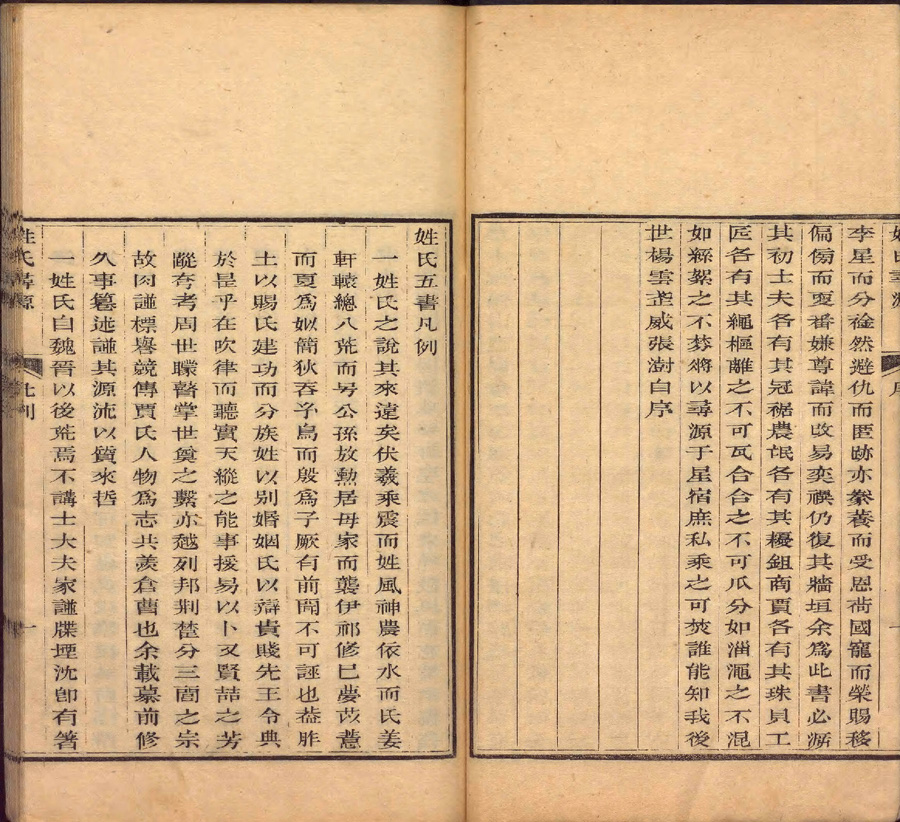 李星而分祲然避仇而匿跡亦豢養而受恩荷國寵而榮賜移
偏傍而更番嫌尊諱而改易奕禩仍復其牆垣余為此書必溯
其初士夫各有其冠裾農氓各有其耰鉏商賈各有其珠貝工
匠各有其繩樞離之不可瓦合合之不可瓜分如淄澠之不混
如絲絮之不棼將以尋源于星宿庶私乘之可焚誰能知我後
世楊雲歪威張澍自序
姓氏五書凡例
一姓氏之說其來遠矣伏羲乘震而姓風神農依水而氏姜
軒轅總八荒而号公孫放勳居母家而襲伊祁修巳夢苡薏
而夏為姒簡狄吞子鳥而殷為子厥有前聞不可誣也葢胙
土以賜氏建功而分族姓以別婚姻氏以辯貴賤先王令典
於是乎在吹律而聽實天縱之能事援易以卜又賢喆之芳
蹤夸考周世矇瞽掌世奠之繫亦越列邦荆楚分三閭之宗
故因譜標譽競傳賈氏人物為志共羨倉曹也余載纂前修
久事纂述譜其源流以質來哲
一姓氏自魏晉以後荒焉不講士大夫家譜牒堙沈卽有箸
姓氏尋源
凡例
一